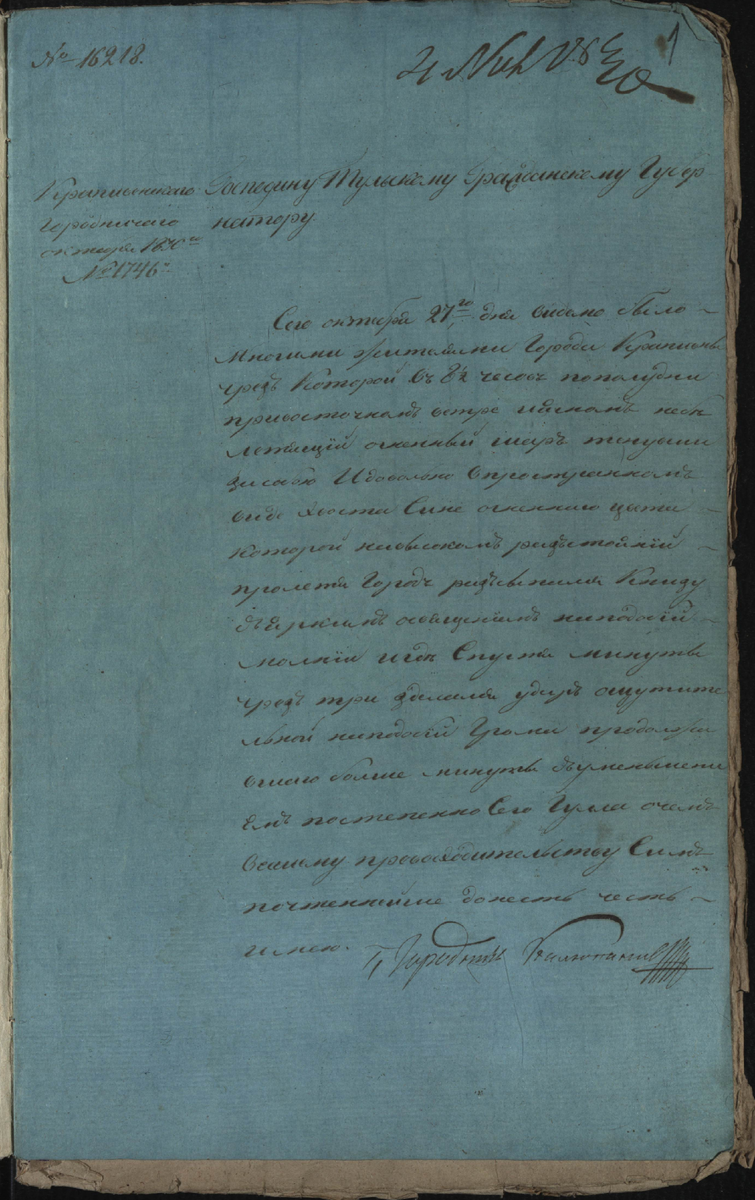 № 16218.
1
Крапивенского
Городничего
октября 1830го
№ 1746й
Господину Тульскому Гражданскому Губер
натору
Сего октября 27го дня видимо было
многими жителями Города Крапивны
чрезъ которой въ 8½ часовъ пополудни
привосточномъ ветре
летящiй огненный шаръ тянувши
засобою Идовольно впространномъ
виде хвоста Сине огненного цвета
которой на высокомъ разстоянiй
пролетя Городъ разсыпался Книзу
съяркимъ освещенiемъ наподобiй
молнiи Спустя минуты
чрезъ три зделался ударъ ощутите
льной наподобiй Грома продолжа
вшагося более минуты съуменьшенi
емъ постепенно Сего Гулла очемъ
Вашему превосходительству Симъ
почтеннейше донесть честь
имею.
Городничiй